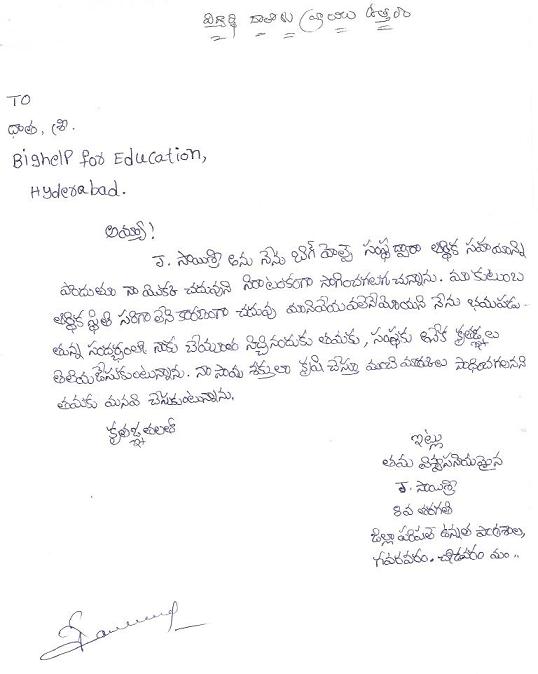 విద్యార్థి దాతలకు వ్రాయు ఉత్తరం
TO
దాత, శ్రీ.
BighelP for Education,
Hyderabad.
అయ్యా!
J. సాయిశ్రీ అను నేను బిగ్ హెల్ప్ సంస్థ ద్వారా ఆర్థిక సహాయాన్ని
పొందుతూ నా యొక్క చదువుని నిరాటంకంగా సాగించగలుగుచున్నాను. మా కుటుంబ
ఆర్థిక స్థితి సరిగా లేని కారణంగా చదువు మానివేయవలెనేమోయని నేను భయపడు-
తున్న సందర్భంలో నాకు చేయూత నిచ్చినందుకు తమకు, సంస్థకు అనేక కృతజ్ఞతలు
తెలియజేసుకుంటున్నాను. నా సాయ శక్తులా కృషి చేస్తూ మంచి మార్కులు సాధించగలనని
తమకు మనవి చేసుకుంటున్నాను.
కృతజ్ఞతలతో
ఇట్లు
తమ విశ్వాసనీయమైన
J. సాయిశ్రీ
8వ తరగతి
జిల్లా పరిషత్ ఉన్నత పాఠశాల,
గవరవరం. చోడవరం మం..